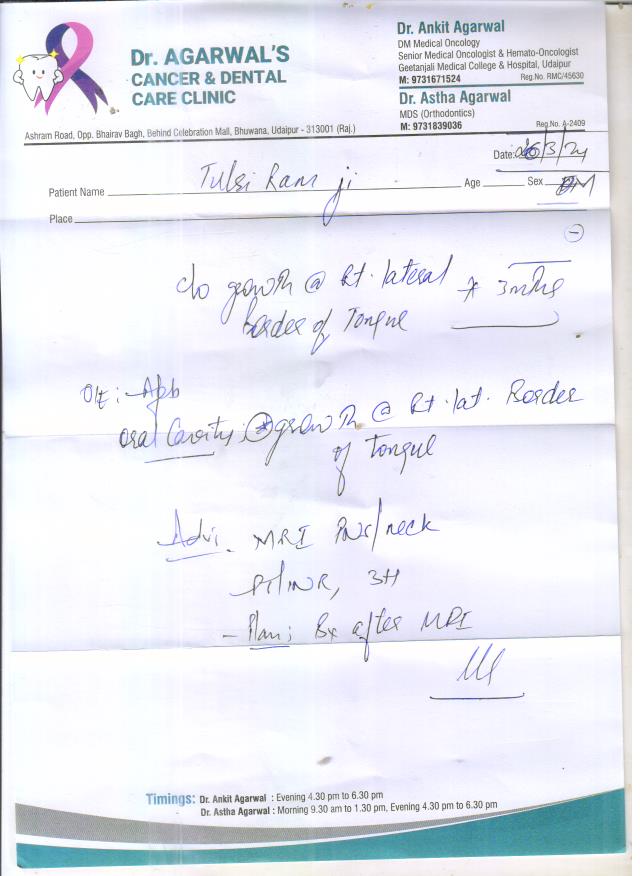 Dr. AGARWAL'S
CANCER & DENTAL
CARE CLINIC
Dr. Ankit Agarwal
DM Medical Oncology
Senior Medical Oncologist & Hemato-Oncologist
Geetanjali Medical College & Hospital, Udaipur
M: 9731671524 Reg.No. RMC/45630
Dr. Astha Agarwal
MDS (Orthodontics)
M: 9731839036 Reg.No. A-2409
Ashram Road, Opp. Bhairav Bagh, Behind Celebration Mall, Bhuwana, Udaipur - 313001 (Raj.)
Date: 26/3/24
Patient Name Tulsi Ram ji Age Sex M
Place
c/o growth @ Rt. lateral * 3mths
border of Tongue
O/E:
Oral Cavity: growth @ Rt. lat. Border
of tongue
Adv: MRI PNS/neck
PT/INR, 3H
- Plan: Bx after MRI
Timings: Dr. Ankit Agarwal : Evening 4.30 pm to 6.30 pm
Dr. Astha Agarwal : Morning 9.30 am to 1.30 pm, Evening 4.30 pm to 6.30 pm